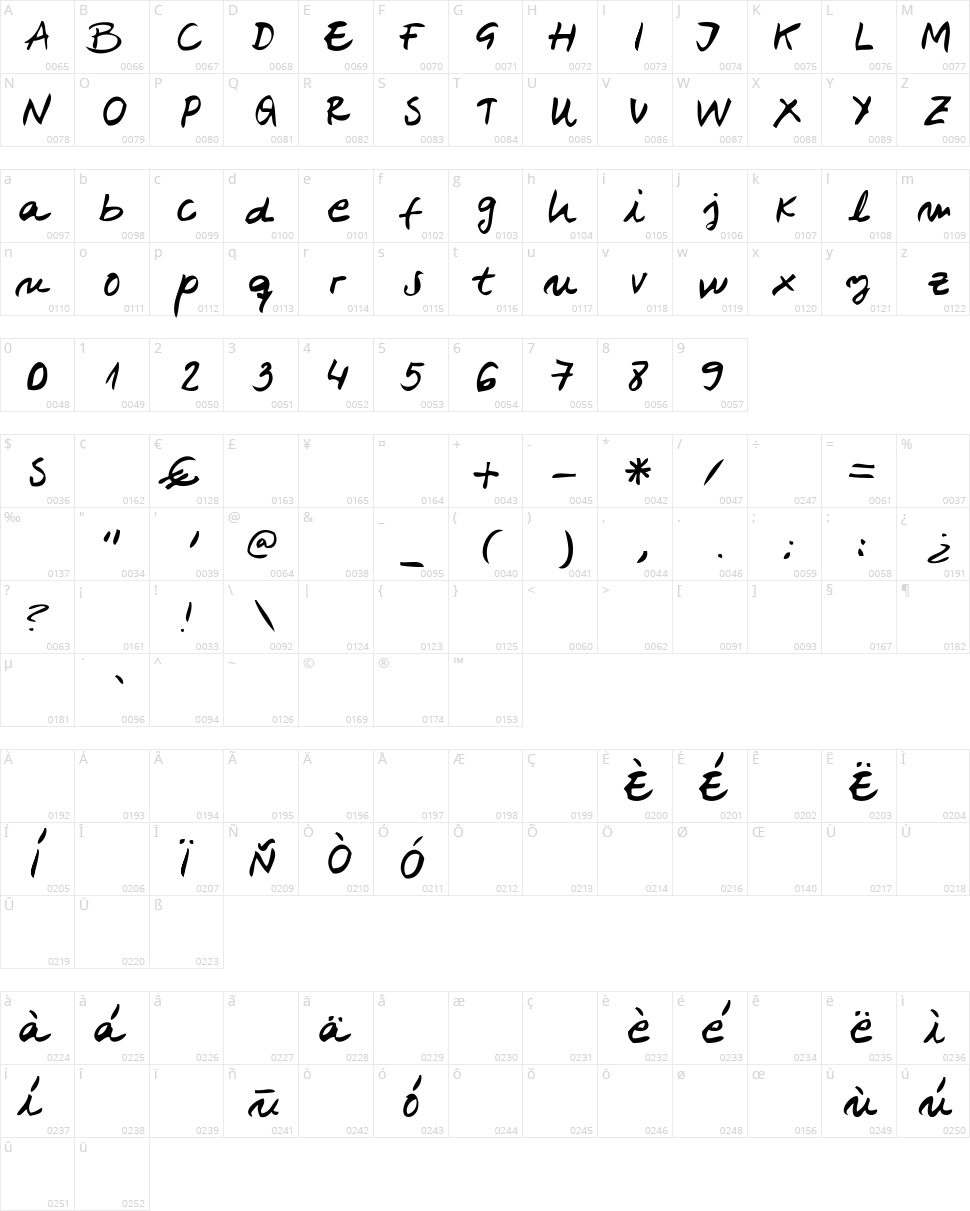 A B C D E F G H I J K L M
A B C D E F G H I J K L M
0065 0066 0067 0068 0069 0070 0071 0072 0073 0074 0075 0076 0077
N O P Q R S T U V W X Y Z
N O P Q R S T U V W X Y Z
0078 0079 0080 0081 0082 0083 0084 0085 0086 0087 0088 0089 0090
a b c d e f g h i j k l m
a b c d e f g h i j k l m
0097 0098 0099 0100 0101 0102 0103 0104 0105 0106 0107 0108 0109
n o p q r s t u v w x y z
n o p q r s t u v w x y z
0110 0111 0112 0113 0114 0115 0116 0117 0118 0119 0120 0121 0122
0 1 2 3 4 5 6 7 8 9
0 1 2 3 4 5 6 7 8 9
0048 0049 0050 0051 0052 0053 0054 0055 0056 0057
$ ¢ € £ ¥ ¤ + - * / ÷ = %
S € + - * / =
0036 0162 0128 0163 0165 0164 0043 0045 0042 0047 0247 0061 0037
‰ " ' @ & _ ( ) , . ; : ¿
" ' @ _ ( ) , . ; : ¿
0137 0034 0039 0064 0038 0095 0040 0041 0044 0046 0059 0058 0191
? ¡ ! \ | { } < > [ ] § ¶
? ! \
0063 0161 0033 0092 0124 0123 0125 0060 0062 0091 0093 0167 0182
µ ` ^ ~ © ® ™
`
0181 0096 0094 0126 0169 0174 0153
À Á Â Ã Ä Å Æ Ç È É Ê Ë Ì
È É Ë
0192 0193 0194 0195 0196 0197 0198 0199 0200 0201 0202 0203 0204
Í Î Ï Ñ Ò Ó Ô Õ Ö Ø Œ Ù Ú
Í Ï Ñ Ò Ó
0205 0206 0207 0209 0210 0211 0212 0213 0214 0216 0140 0217 0218
Û Ü ß
0219 0220 0223
à á â ã ä å æ ç è é ê ë ì
à á ä è é ë ì
0224 0225 0226 0227 0228 0229 0230 0231 0232 0233 0234 0235 0236
í î ï ñ ò ó ô õ ö ø œ ù ú
í ñ ó ù ú
0237 0238 0239 0241 0242 0243 0244 0245 0246 0248 0156 0249 0250
û ü
0251 0252